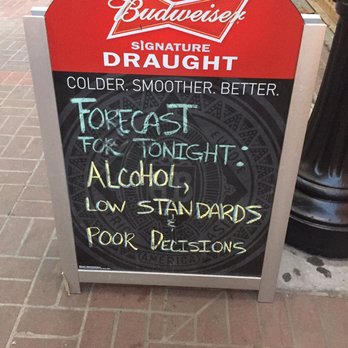 Budweiser
SIGNATURE
DRAUGHT
COLDER. SMOOTHER. BETTER.
FORECAST
FOR TONIGHT:
ALCOHOL,
LOW STANDARDS
&
POOR DECISIONS